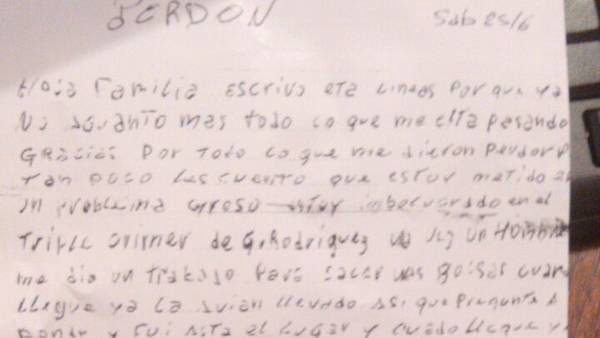 PERDON Sab 25/6
Hola Familia escrivo eta lineas Porque ya
No aguanto mas todo lo que me etta pasando
GRacias Por Todo lo que me dieron Perdon
Tan poco les cuento que estoy metido en
un problema groso estoy imbolucrado en el
Triple crimen de G. Rodriguez un Hombre
me dio un Trabajo Para sacar unas bolsas cuan
llegue ya la avian llevado asi que Pregunte a
Donde y Fui asta el lugar y cuado llegue y